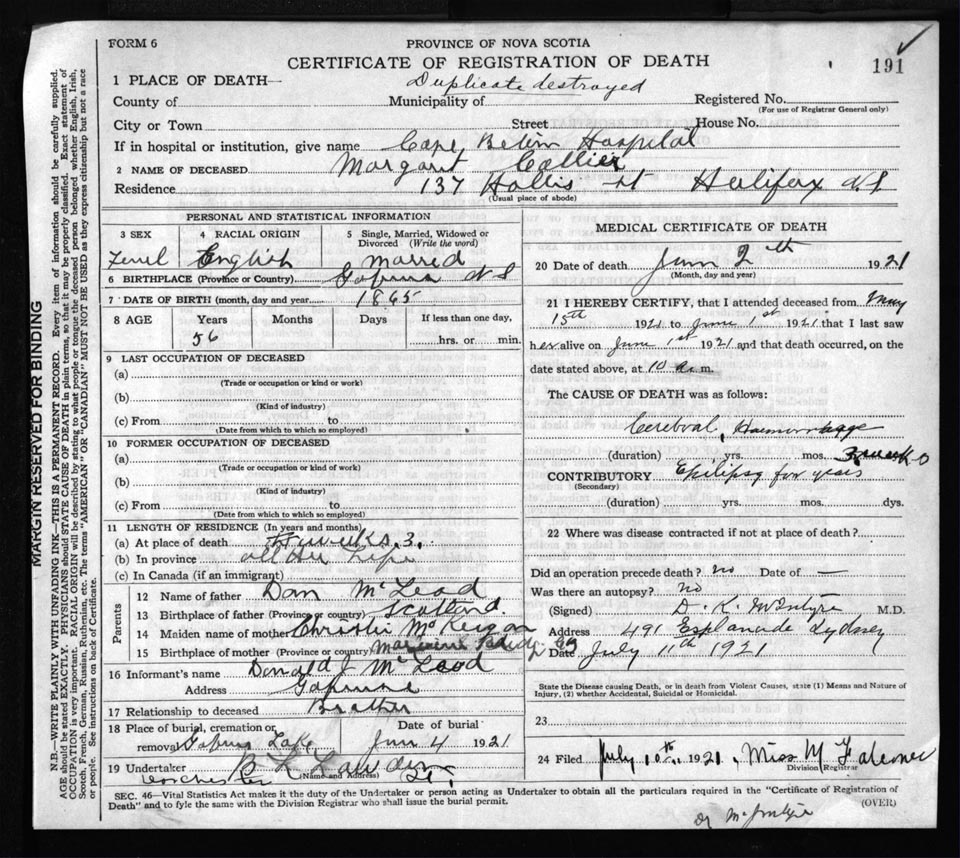 FORM 6
PROVINCE OF NOVA SCOTIA
CERTIFICATE OF REGISTRATION OF DEATH
191
1 PLACE OF DEATH— Duplicate destroyed
County of Municipality of Registered No.
(For use of Registrar General only)
City or Town Street House No.
If in hospital or institution, give name Cape Hospital
2 NAME OF DECEASED. Margaret Collier
Residence 137 Hollis St Halifax N.S
(Usual place of abode)
PERSONAL AND STATISTICAL INFORMATION
3 SEX 4 RACIAL ORIGIN 5 Single, Married, Widowed or Divorced (Write the word)
English Married
6 BIRTHPLACE (Province or Country) N S
7 DATE OF BIRTH (month, day and year) 1865
8 AGE Years Months Days If less than one day,
56 hrs. or min.
9 LAST OCCUPATION OF DECEASED
(a)
(Trade or occupation or kind or work)
(b)
(Kind of industry)
(c) From to
(Date from which to which so employed)
10 FORMER OCCUPATION OF DECEASED
(a)
(Trade or occupation or kind of work)
(b)
(Kind of industry)
(c) From to
(Date from which to which so employed)
11 LENGTH OF RESIDENCE (In years and months)
(a) At place of death weeks 3.
(b) In province all her Life
(c) In Canada (if an immigrant)
Parents
12 Name of father Dan McLeod
13 Birthplace of father (Province or country) Scotland
14 Maiden name of mother Christie
15 Birthplace of mother (Province or country)
16 Informant's name Donald J McLeod
Address
17 Relationship to deceased Brother
18 Place of burial, cremation or removal Lake
Date of burial June 4 1921
19 Undertaker B
(Name and Address)
MEDICAL CERTIFICATE OF DEATH
20 Date of death June 2th 1921
(Month, day and year)
21 I HEREBY CERTIFY, that I attended deceased from May
15th 1921 to June 1st 1921 that I last saw
her alive on June 1st 1921 and that death occurred, on the
date stated above, at 10 a. m.
The CAUSE OF DEATH was as follows:
Cerebral Haemorrhage
(duration) yrs. mos. 3 weeks
CONTRIBUTORY Epilipsy for years
(Secondary)
(duration) yrs. mos. dys.
22 Where was disease contracted if not at place of death?
Did an operation precede death? no Date of —
Was there an autopsy? No
(Signed) D. K. McIntyre M.D.
Address 491 Esplanade Sydney
Date July 11th 1921
State the Disease causing Death, or in death from Violent Causes, state (1) Means and Nature of
Injury, (2) whether Accidental, Suicidal or Homicidal.
23
24 Filed July 1921. Miss M Falconer
Division Registrar
SEC. 46—Vital Statistics Act makes it the duty of the Undertaker or person acting as Undertaker to obtain all the particulars required in the "Certificate of Registration of
Death" and to fyle the same with the Division Registrar who shall issue the burial permit.
(OVER)
Dr McIntyre
MARGIN RESERVED FOR BINDING
N.B.—WRITE PLAINLY WITH UNFADING INK—THIS IS A PERMANENT RECORD. Every item of information should be carefully supplied.
AGE should be stated EXACTLY. PHYSICIANS should STATE CAUSE OF DEATH in plain terms, so that it may be properly classified. Exact statement of
OCCUPATION is very important. RACIAL ORIGIN will be described by stating to what people or tongue the deceased person belonged whether English, Irish,
Scotch, French, German, Russian, Ruthenian, etc. The terms "AMERICAN" OR "CANADIAN" MUST NOT BE USED as they express citizenship but not a race
or people. See instructions on back of Certificate.